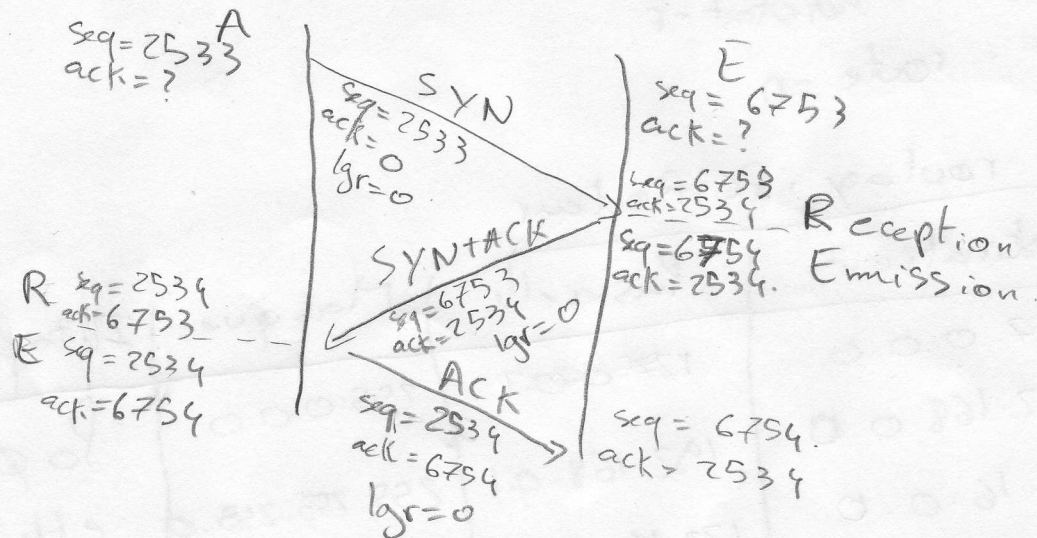 A
seq = 2533
ack = ?
SYN
seq = 2533
ack = 0
lgr = 0
E
seq = 6753
ack = ?
seq = 6753
ack = 2534
Reception
seq = 6754
ack = 2534.
Emission.
SYN+ACK
seq = 6753
ack = 2534
lgr = 0
R seq = 2534
ack = 6753
E seq = 2534
ack = 6754
ACK
seq = 2534
ack = 6754
lgr = 0
seq = 6754.
ack = 2534